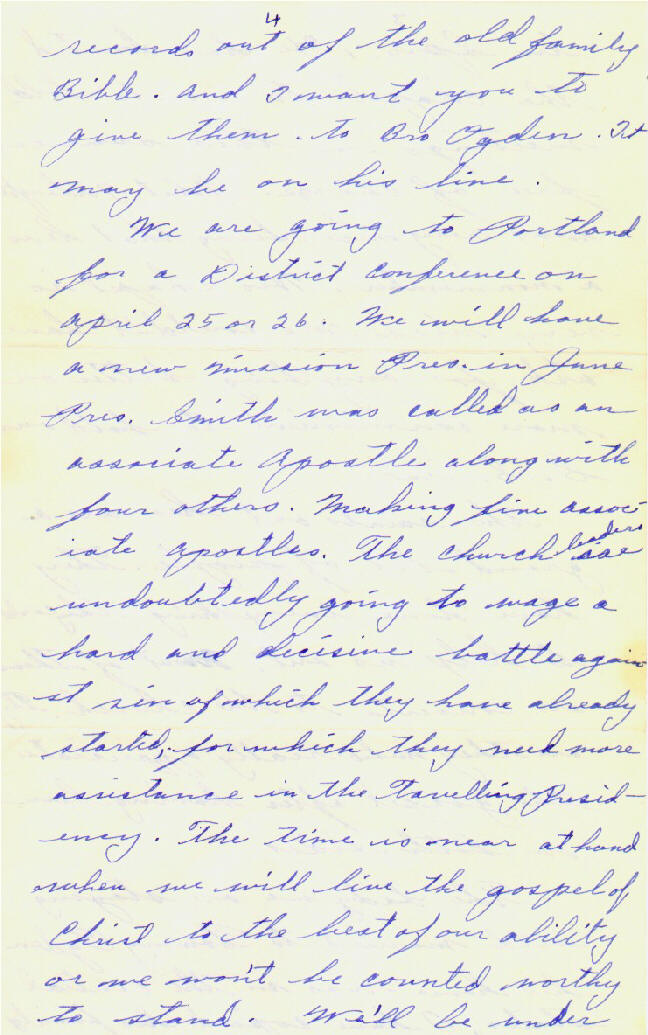 4
records out of the old family
Bible. and I want you to
give them. to Bro Ogden. It
may be on his line.
We are going to Portland
for a District conference on
april 25 or 26. We will have
a new mission Pres. in June
Pres. Smith was called as an
associate apostle along with
four others. Making five assoc-
iate apostles. The church leaders are
undoubtedly going to wage a
hard and decisive battle again
st sin of which they have already
started, for which they need more
assistance in the Tavelling Presid-
ency. The time is near at hand
when we will live the gospel of
Christ to the best of our ability
or we won't be counted worthy
to stand. We'll be under